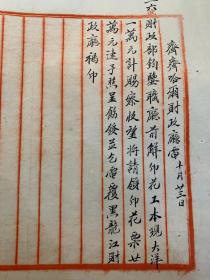 齊齊哈爾財政廳電十月廿三日
六財政部鈞鑒職廳前解印花工本現大洋
一萬元計賜察收望將請領印花票廿
萬元速予照呈飭發並乞電覆黑龍江財
政廳楊印